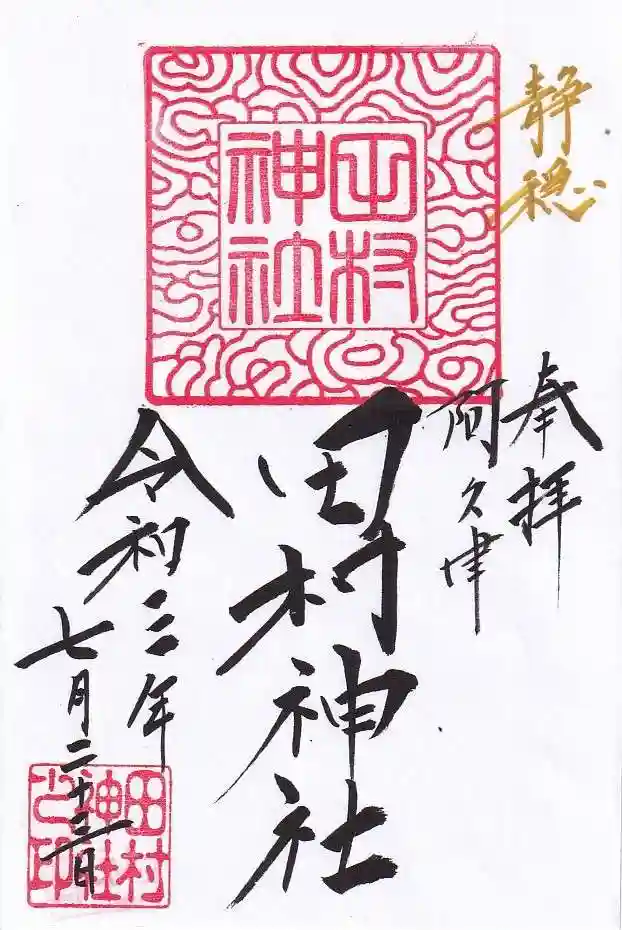 静穏
奉拝
阿久津
田村
神社
田村神社
令和三年
七月二十三日
田村
神社
之印